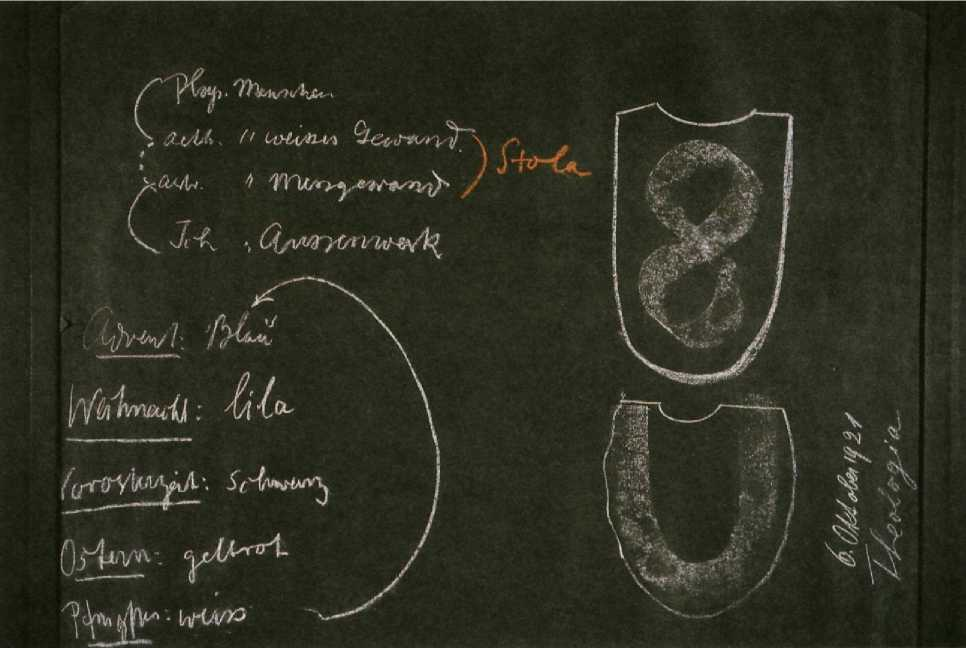 Phys. Menschen
aeth. " weisses Gewand
astr. " Messgewand
Stola
Ich " Aussenwerk
Advent: Blau
Weihnacht: lila
Vorosterzeit: Schwarz
Ostern: gelbrot
Pfingsten: weiss
6. Oktober 1921
Theologia